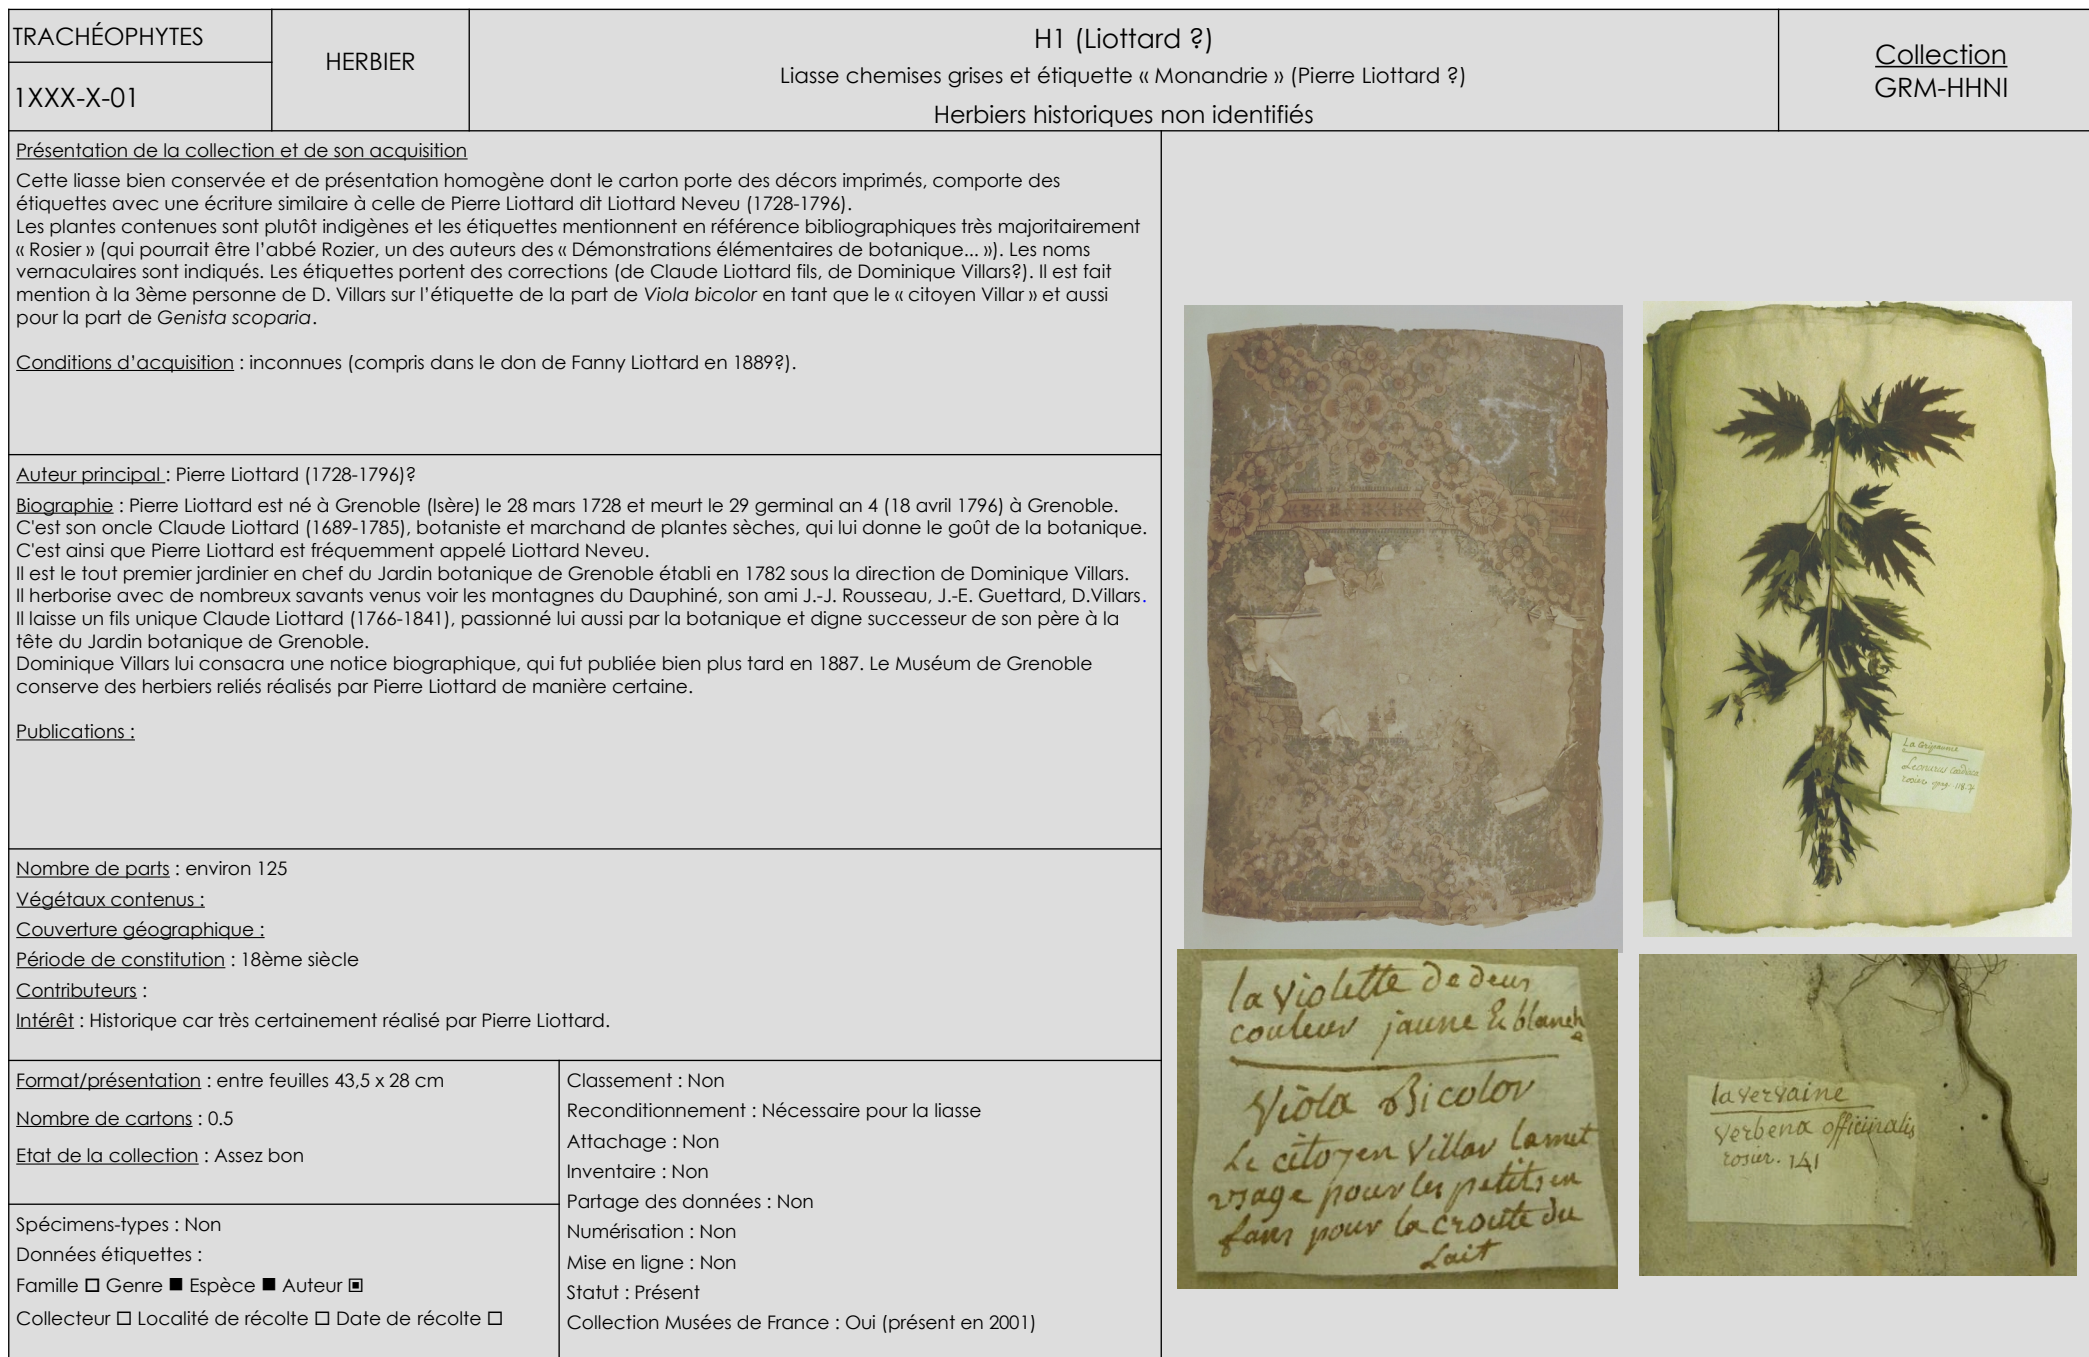 TRACHÉOPHYTES
1XXX-X-01
HERBIER
H1 (Liottard ?)
Liasse chemises grises et étiquette « Monandrie » (Pierre Liottard ?)
Herbiers historiques non identifiés
Collection
GRM-HHNI
Présentation de la collection et de son acquisition
Cette liasse bien conservée et de présentation homogène dont le carton porte des décors imprimés, comporte des
étiquettes avec une écriture similaire à celle de Pierre Liottard dit Liottard Neveu (1728-1796).
Les plantes contenues sont plutôt indigènes et les étiquettes mentionnent en référence bibliographiques très majoritairement
« Rosier » (qui pourrait être l'abbé Rozier, un des auteurs des « Démonstrations élémentaires de botanique... »). Les noms
vernaculaires sont indiqués. Les étiquettes portent des corrections (de Claude Liottard fils, de Dominique Villars?). Il est fait
mention à la 3ème personne de D. Villars sur l'étiquette de la part de Viola bicolor en tant que le « citoyen Villar » et aussi
pour la part de Genista scoparia.
Conditions d'acquisition : inconnues (compris dans le don de Fanny Liottard en 1889?).
Auteur principal : Pierre Liottard (1728-1796)?
Biographie : Pierre Liottard est né à Grenoble (Isère) le 28 mars 1728 et meurt le 29 germinal an 4 (18 avril 1796) à Grenoble.
C'est son oncle Claude Liottard (1689-1785), botaniste et marchand de plantes sèches, qui lui donne le goût de la botanique.
C'est ainsi que Pierre Liottard est fréquemment appelé Liottard Neveu.
Il est le tout premier jardinier en chef du Jardin botanique de Grenoble établi en 1782 sous la direction de Dominique Villars.
Il herborise avec de nombreux savants venus voir les montagnes du Dauphiné, son ami J.-J. Rousseau, J.-E. Guettard, D.Villars.
Il laisse un fils unique Claude Liottard (1766-1841), passionné lui aussi par la botanique et digne successeur de son père à la
tête du Jardin botanique de Grenoble.
Dominique Villars lui consacra une notice biographique, qui fut publiée bien plus tard en 1887. Le Muséum de Grenoble
conserve des herbiers reliés réalisés par Pierre Liottard de manière certaine.
Publications :
Nombre de parts : environ 125
Végétaux contenus :
Couverture géographique :
Période de constitution : 18ème siècle
Contributeurs :
Intérêt : Historique car très certainement réalisé par Pierre Liottard.
Format/présentation : entre feuilles 43,5 x 28 cm
Nombre de cartons : 0.5
Etat de la collection : Assez bon
Spécimens-types : Non
Données étiquettes :
Famille □ Genre ■ Espèce ■ Auteur ▣
Collecteur □ Localité de récolte □ Date de récolte □
Classement : Non
Reconditionnement : Nécessaire pour la liasse
Attachage : Non
Inventaire : Non
Partage des données : Non
Numérisation : Non
Mise en ligne : Non
Statut : Présent
Collection Musées de France : Oui (présent en 2001)
La Gripaume
Leonurus
rosier pag. 118
la violette de deux
couleur jaune & blanche
Viola Bicolor
Le citoyen Villar lamet
usage pour les petits en
fans pour la croute du
Lait
la vervaine
verbena officinalis
rosier. 141